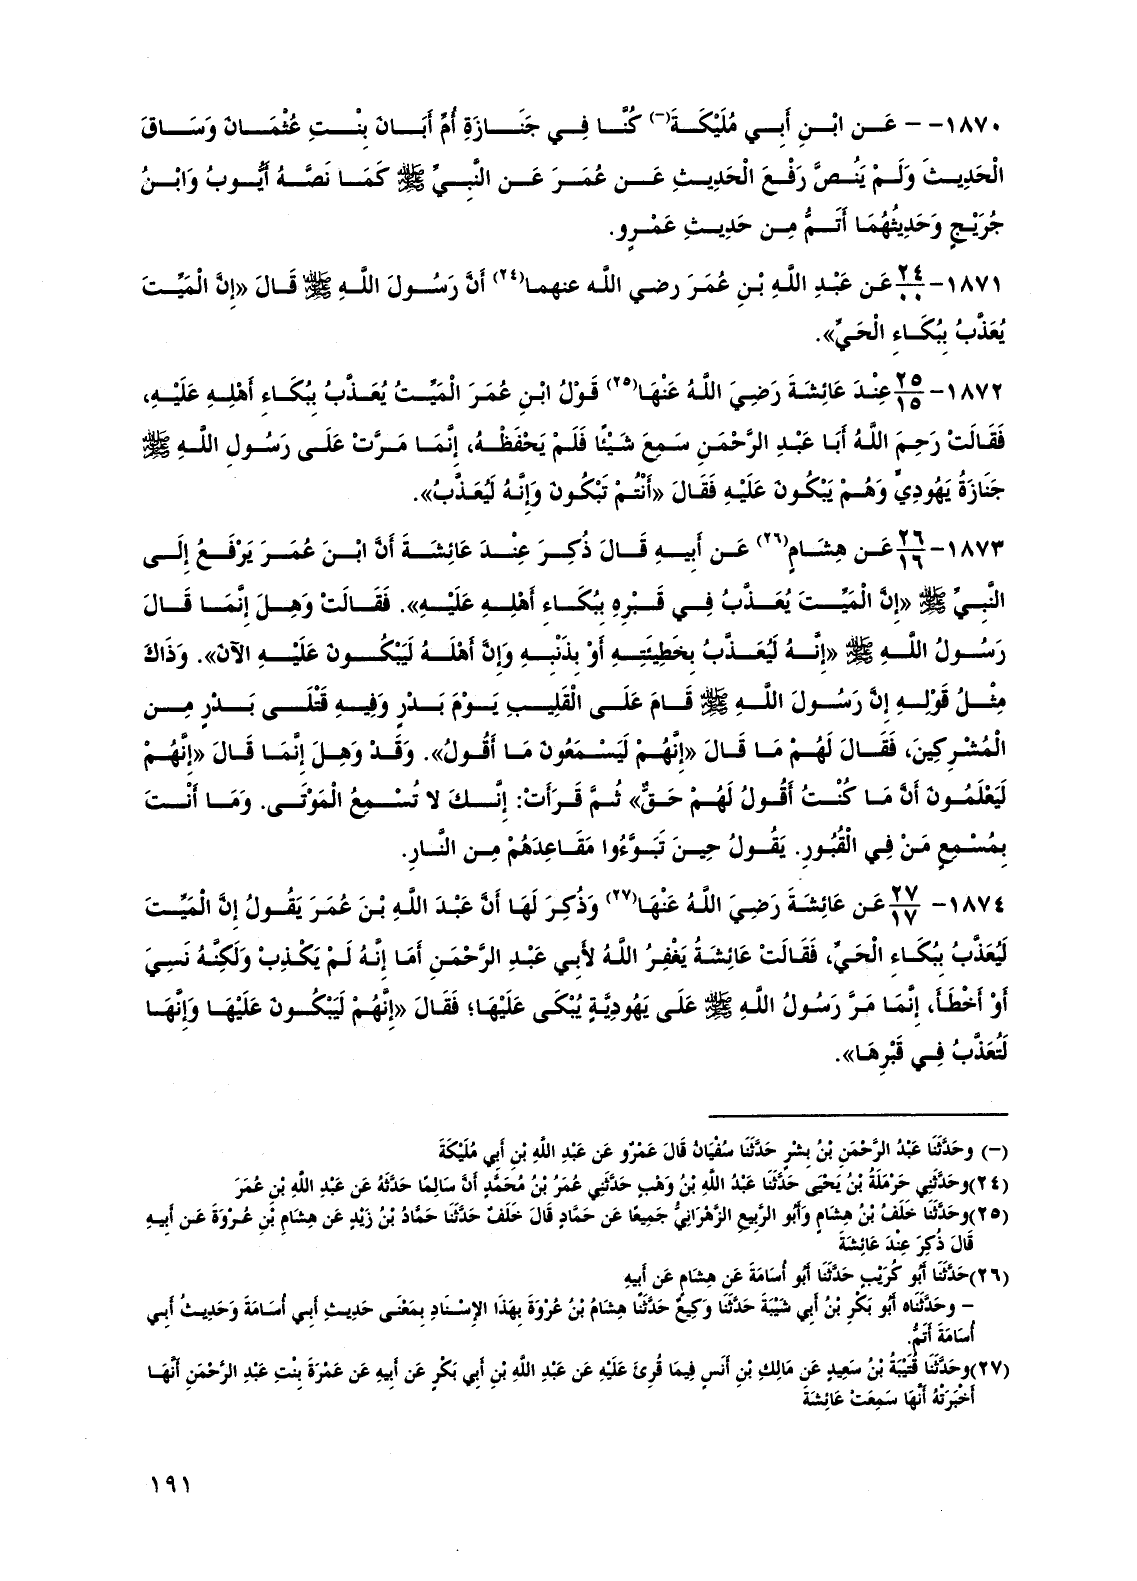 ١٨٧٠- – عَنِ ابْنِ أَبِي مُلَيْكَةَ(–) كُنَّا فِي جَنَازَةِ أُمِّ أَبَانَ بِنْتِ عُثْمَانَ وَسَاقَ
الْحَدِيثَ وَلَمْ يَنُصَّ رَفْعَ الْحَدِيثِ عَنْ عُمَرَ عَنِ النَّبِيِّ ﷺ كَمَا نَصَّهُ أَيُّوبُ وَابْنُ
جُرَيْجٍ وَحَدِيثُهُمَا أَتَمُّ مِن حَدِيثِ عَمْرٍو.
١٨٧١- ٢٤/٠٠ عَن عَبْدِ اللَّهِ بْنِ عُمَرَ رضي الله عنهما(٢٤) أَنَّ رَسُولَ اللَّهِ ﷺ قَالَ «إِنَّ الْمَيِّتَ
يُعَذَّبُ بِبُكَاءِ الْحَيِّ».
١٨٧٢- ٢٥/١٥ عِنْدَ عَائِشَةَ رَضِيَ اللَّهُ عَنْهَا(٢٥) قَوْلُ ابْنِ عُمَرَ الْمَيِّتُ يُعَذَّبُ بِبُكَاءِ أَهْلِهِ عَلَيْهِ،
فَقَالَتْ رَحِمَ اللَّهُ أَبَا عَبْدِ الرَّحْمَنِ سَمِعَ شَيْئًا فَلَمْ يَحْفَظْهُ، إِنَّمَا مَرَّتْ عَلَى رَسُولِ اللَّهِ ﷺ
جَنَازَةُ يَهُودِيٍّ وَهُمْ يَبْكُونَ عَلَيْهِ فَقَالَ «أَنْتُمْ تَبْكُونَ وَإِنَّهُ لَيُعَذَّبُ».
١٨٧٣- ٢٦/١٦ عَن هِشَامٍ(٢٦) عَن أَبِيهِ قَالَ ذُكِرَ عِنْدَ عَائِشَةَ أَنَّ ابْنَ عُمَرَ يَرْفَعُ إِلَى
النَّبِيِّ ﷺ «إِنَّ الْمَيِّتَ يُعَذَّبُ فِي قَبْرِهِ بِبُكَاءِ أَهْلِهِ عَلَيْهِ». فَقَالَتْ وَهِلَ إِنَّمَا قَالَ
رَسُولُ اللَّهِ ﷺ «إِنَّهُ لَيُعَذَّبُ بِخَطِيئَتِهِ أَوْ بِذَنْبِهِ وَإِنَّ أَهْلَهُ لَيَبْكُونَ عَلَيْهِ الآنَ». وَذَاكَ
مِثْلُ قَوْلِهِ إِنَّ رَسُولَ اللَّهِ ﷺ قَامَ عَلَى الْقَلِيبِ يَوْمَ بَدْرٍ وَفِيهِ قَتْلَى بَدْرٍ مِن
الْمُشْرِكِينَ، فَقَالَ لَهُمْ مَا قَالَ «إِنَّهُمْ لَيَسْمَعُونَ مَا أَقُولُ». وَقَدْ وَهِلَ إِنَّمَا قَالَ «إِنَّهُمْ
لَيَعْلَمُونَ أَنَّ مَا كُنْتُ أَقُولُ لَهُمْ حَقٌّ» ثُمَّ قَرَأَتْ: إِنَّكَ لا تُسْمِعُ الْمَوْتَى. وَمَا أَنْتَ
بِمُسْمِعٍ مَنْ فِي الْقُبُورِ. يَقُولُ حِينَ تَبَوَّءُوا مَقَاعِدَهُمْ مِن النَّارِ.
١٨٧٤- ٢٧/١٧ عَن عَائِشَةَ رَضِيَ اللَّهُ عَنْهَا(٢٧) وَذُكِرَ لَهَا أَنَّ عَبْدَ اللَّهِ بْنَ عُمَرَ يَقُولُ إِنَّ الْمَيِّتَ
لَيُعَذَّبُ بِبُكَاءِ الْحَيِّ، فَقَالَتْ عَائِشَةُ يَغْفِرُ اللَّهُ لأَبِي عَبْدِ الرَّحْمَنِ أَمَا إِنَّهُ لَمْ يَكْذِبْ وَلَكِنَّهُ نَسِيَ
أَوْ أَخْطَأَ، إِنَّمَا مَرَّ رَسُولُ اللَّهِ ﷺ عَلَى يَهُودِيَّةٍ يُبْكَى عَلَيْهَا؛ فَقَالَ «إِنَّهُمْ لَيَبْكُونَ عَلَيْهَا وَإِنَّهَا
لَتُعَذَّبُ فِي قَبْرِهَا».
(–) وحَدَّثَنَا عَبْدُ الرَّحْمَنِ بْنُ بِشْرٍ حَدَّثَنَا سُفْيَانُ قَالَ عَمْرٌو عَن عَبْدِ اللَّهِ بْنِ أَبِي مُلَيْكَةَ
(٢٤)وحَدَّثَنِي حَرْمَلَةُ بْنُ يَحْيَى حَدَّثَنَا عَبْدُ اللَّهِ بْنُ وَهْبٍ حَدَّثَنِي عُمَرُ بْنُ مُحَمَّدٍ أَنَّ سَالِمًا حَدَّثَهُ عَن عَبْدِ اللَّهِ بْنِ عُمَرَ
(٢٥)وحَدَّثَنَا خَلَفُ بْنُ هِشَامٍ وَأَبُو الرَّبِيعِ الزَّهْرَانِيُّ جَمِيعًا عَن حَمَّادٍ قَالَ خَلَفٌ حَدَّثَنَا حَمَّادُ بْنُ زَيْدٍ عَن هِشَامِ بْنِ عُرْوَةَ عَن أَبِيهِ
قَالَ ذُكِرَ عِنْدَ عَائِشَةَ
(٢٦)حَدَّثَنَا أَبُو كُرَيْبٍ حَدَّثَنَا أَبُو أُسَامَةَ عَن هِشَامٍ عَن أَبِيهِ
– وحَدَّثَنَاه أَبُو بَكْرِ بْنُ أَبِي شَيْبَةَ حَدَّثَنَا وَكِيعٌ حَدَّثَنَا هِشَامُ بْنُ عُرْوَةَ بِهَذَا الإِسْنَادِ بِمَعْنَى حَدِيثِ أَبِي أُسَامَةَ وَحَدِيثُ أَبِي
أُسَامَةَ أَتَمُّ.
(٢٧)وحَدَّثَنَا قُتَيْبَةُ بْنُ سَعِيدٍ عَن مَالِكِ بْنِ أَنَسٍ فِيمَا قُرِئَ عَلَيْهِ عَن عَبْدِ اللَّهِ بْنِ أَبِي بَكْرٍ عَن أَبِيهِ عَن عَمْرَةَ بِنْتِ عَبْدِ الرَّحْمَنِ أَنَّهَا
أَخْبَرَتْهُ أَنَّهَا سَمِعَتْ عَائِشَةَ
١٩١